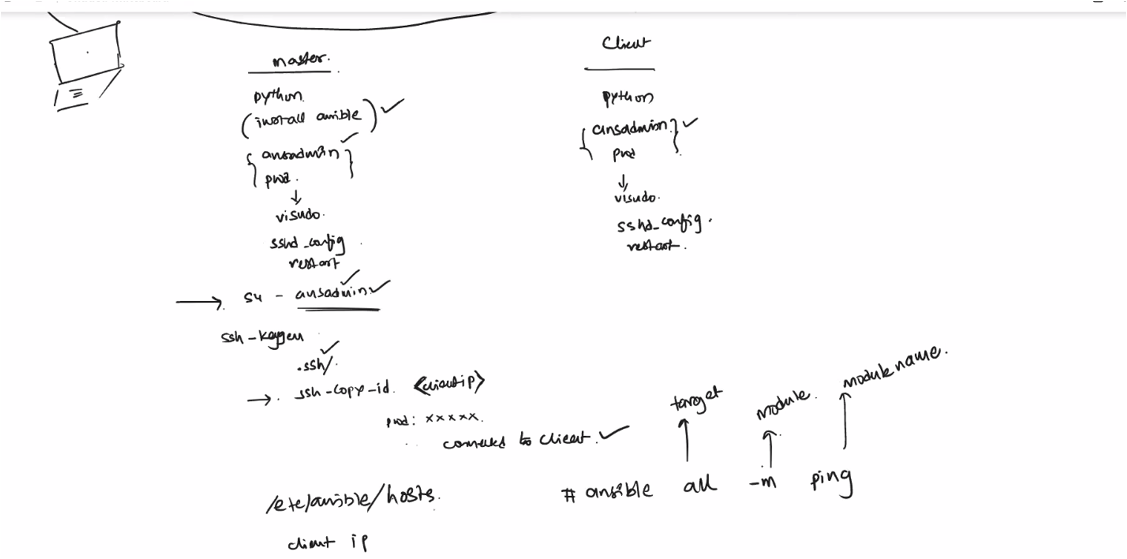 master.
python
(install ansible)
{ansadmin}
pwd.
visudo.
sshd_config
restart
su - ansadmin
ssh-keygen
.ssh/.
ssh-copy-id. <clientip>
pwd: xxxxx.
connected to client.
/etc/ansible/hosts.
client ip
Client
python
{ansadmin}
pwd
visudo.
sshd_config.
restart.
target
module.
module name.
# ansible all -m ping